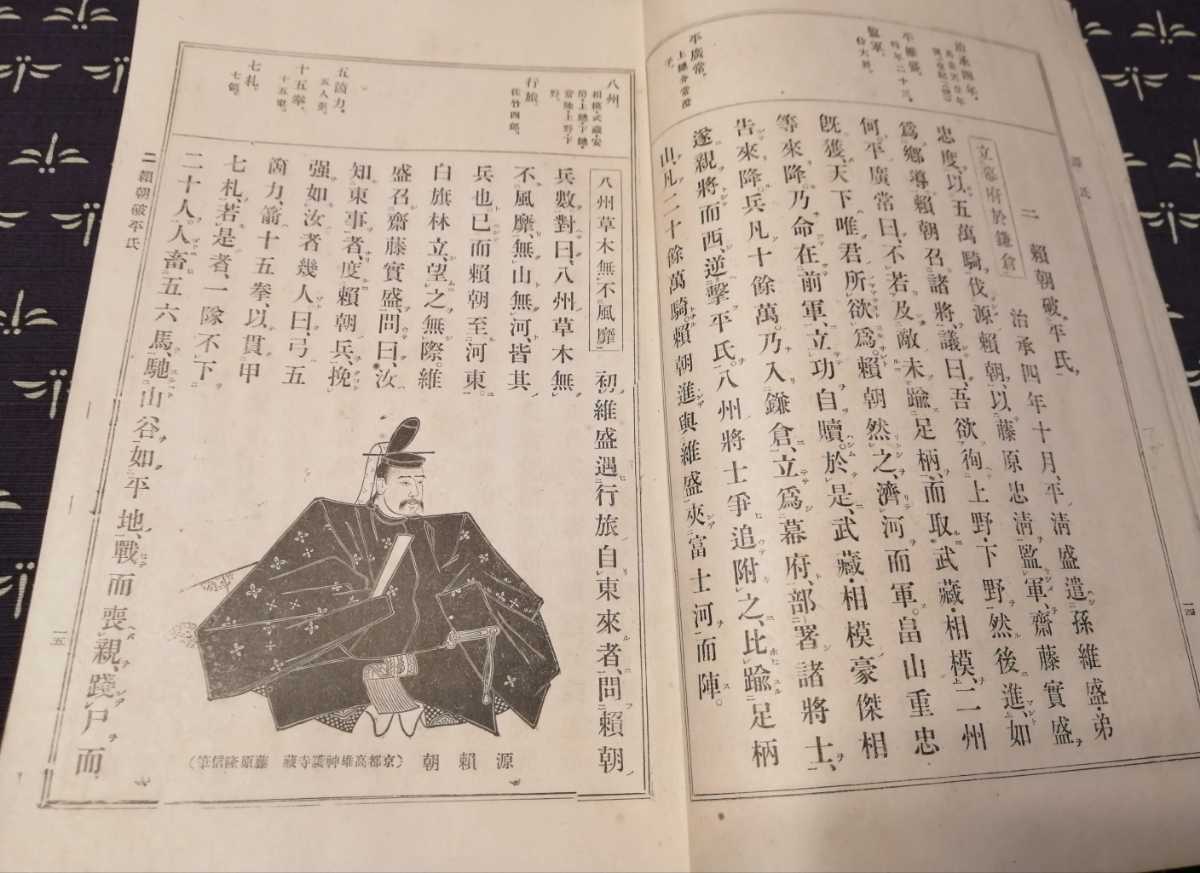 源氏
平維盛。
時年二十三。
監軍。
平廣常。
上總介常澄
子。
二 賴朝破平氏
立幕府於鎌倉
治承四年十月、平淸盛遣孫維盛・弟
忠度、以五萬騎伐源賴朝、以藤原忠淸監軍、齋藤實盛
爲鄕導。賴朝召諸將、議曰、吾欲徇上野・下野然後進、如
何。平廣常曰、不若及敵未踰足柄、而取武藏・相模。二州
旣獲、天下唯君所欲爲。賴朝然之、濟河而軍。畠山重忠
等來降。乃命在前軍、立功自贖。於是、武藏・相模豪傑相
吿來降。兵凡十餘萬。乃入鎌倉、立爲幕府、部署諸將士、
遂親將而西、逆擊平氏。八州將士爭追附之、比踰足柄
山、凡二十餘萬騎。賴朝進與維盛夾富士河而陣。
一四
八州。
相模・武藏・安
房・上總・下總・
常陸・上野・下
野。
行旅。
佐竹四郞。
五箇力。
五人張。
十五拳。
十五束。
七札。
七領。
八州草木無不風靡
初維盛遇行旅自東來者、問賴朝
兵數。對曰、八州草木無
不風靡、無山無河、皆其
兵也。已而賴朝至河東。
白旗林立、望之無際。維
盛召齋藤實盛、問曰、汝
知東事者、度賴朝兵、挽
强如汝者幾人。曰、弓五
箇力、箭十五拳、以貫甲
七札、若是者、一隊不下
二十人。人畜五六馬、馳山谷如平地、戰而喪親、踐尸而
源賴朝 (京都高雄神護寺藏 藤原隆信筆)
二 賴朝破平氏
一五